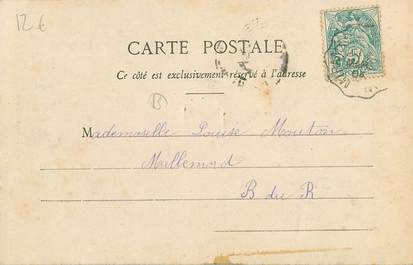 12 €
CARTE POSTALE
Ce côté est exclusivement réservé à l'adresse
B
Mademoselle Louise Mouton
Mallemord
B du R